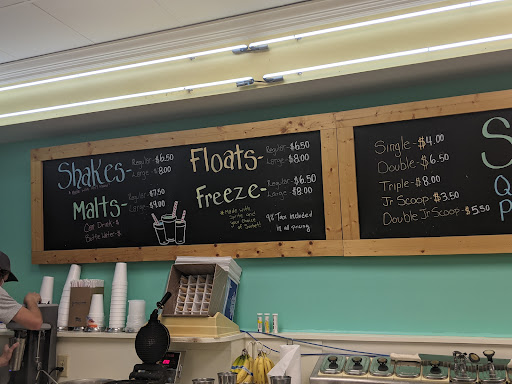 Shakes-
Regular-$6.50
Large-$8.00
Malts-
Regular-$7.50
Large-$9.00
Can Drink-$
Bottle Water-$
Floats-
Regular-$6.50
Large-$8.00
Freeze-
Regular-$6.50
Large-$8.00
*Made with
Sorbet!
9% Tax included
in all pricing
Single-$4.00
Double-$6.50
Triple-$8.00
Jr Scoop-$3.50
Double Jr Scoop-$5.50
S
Q
P